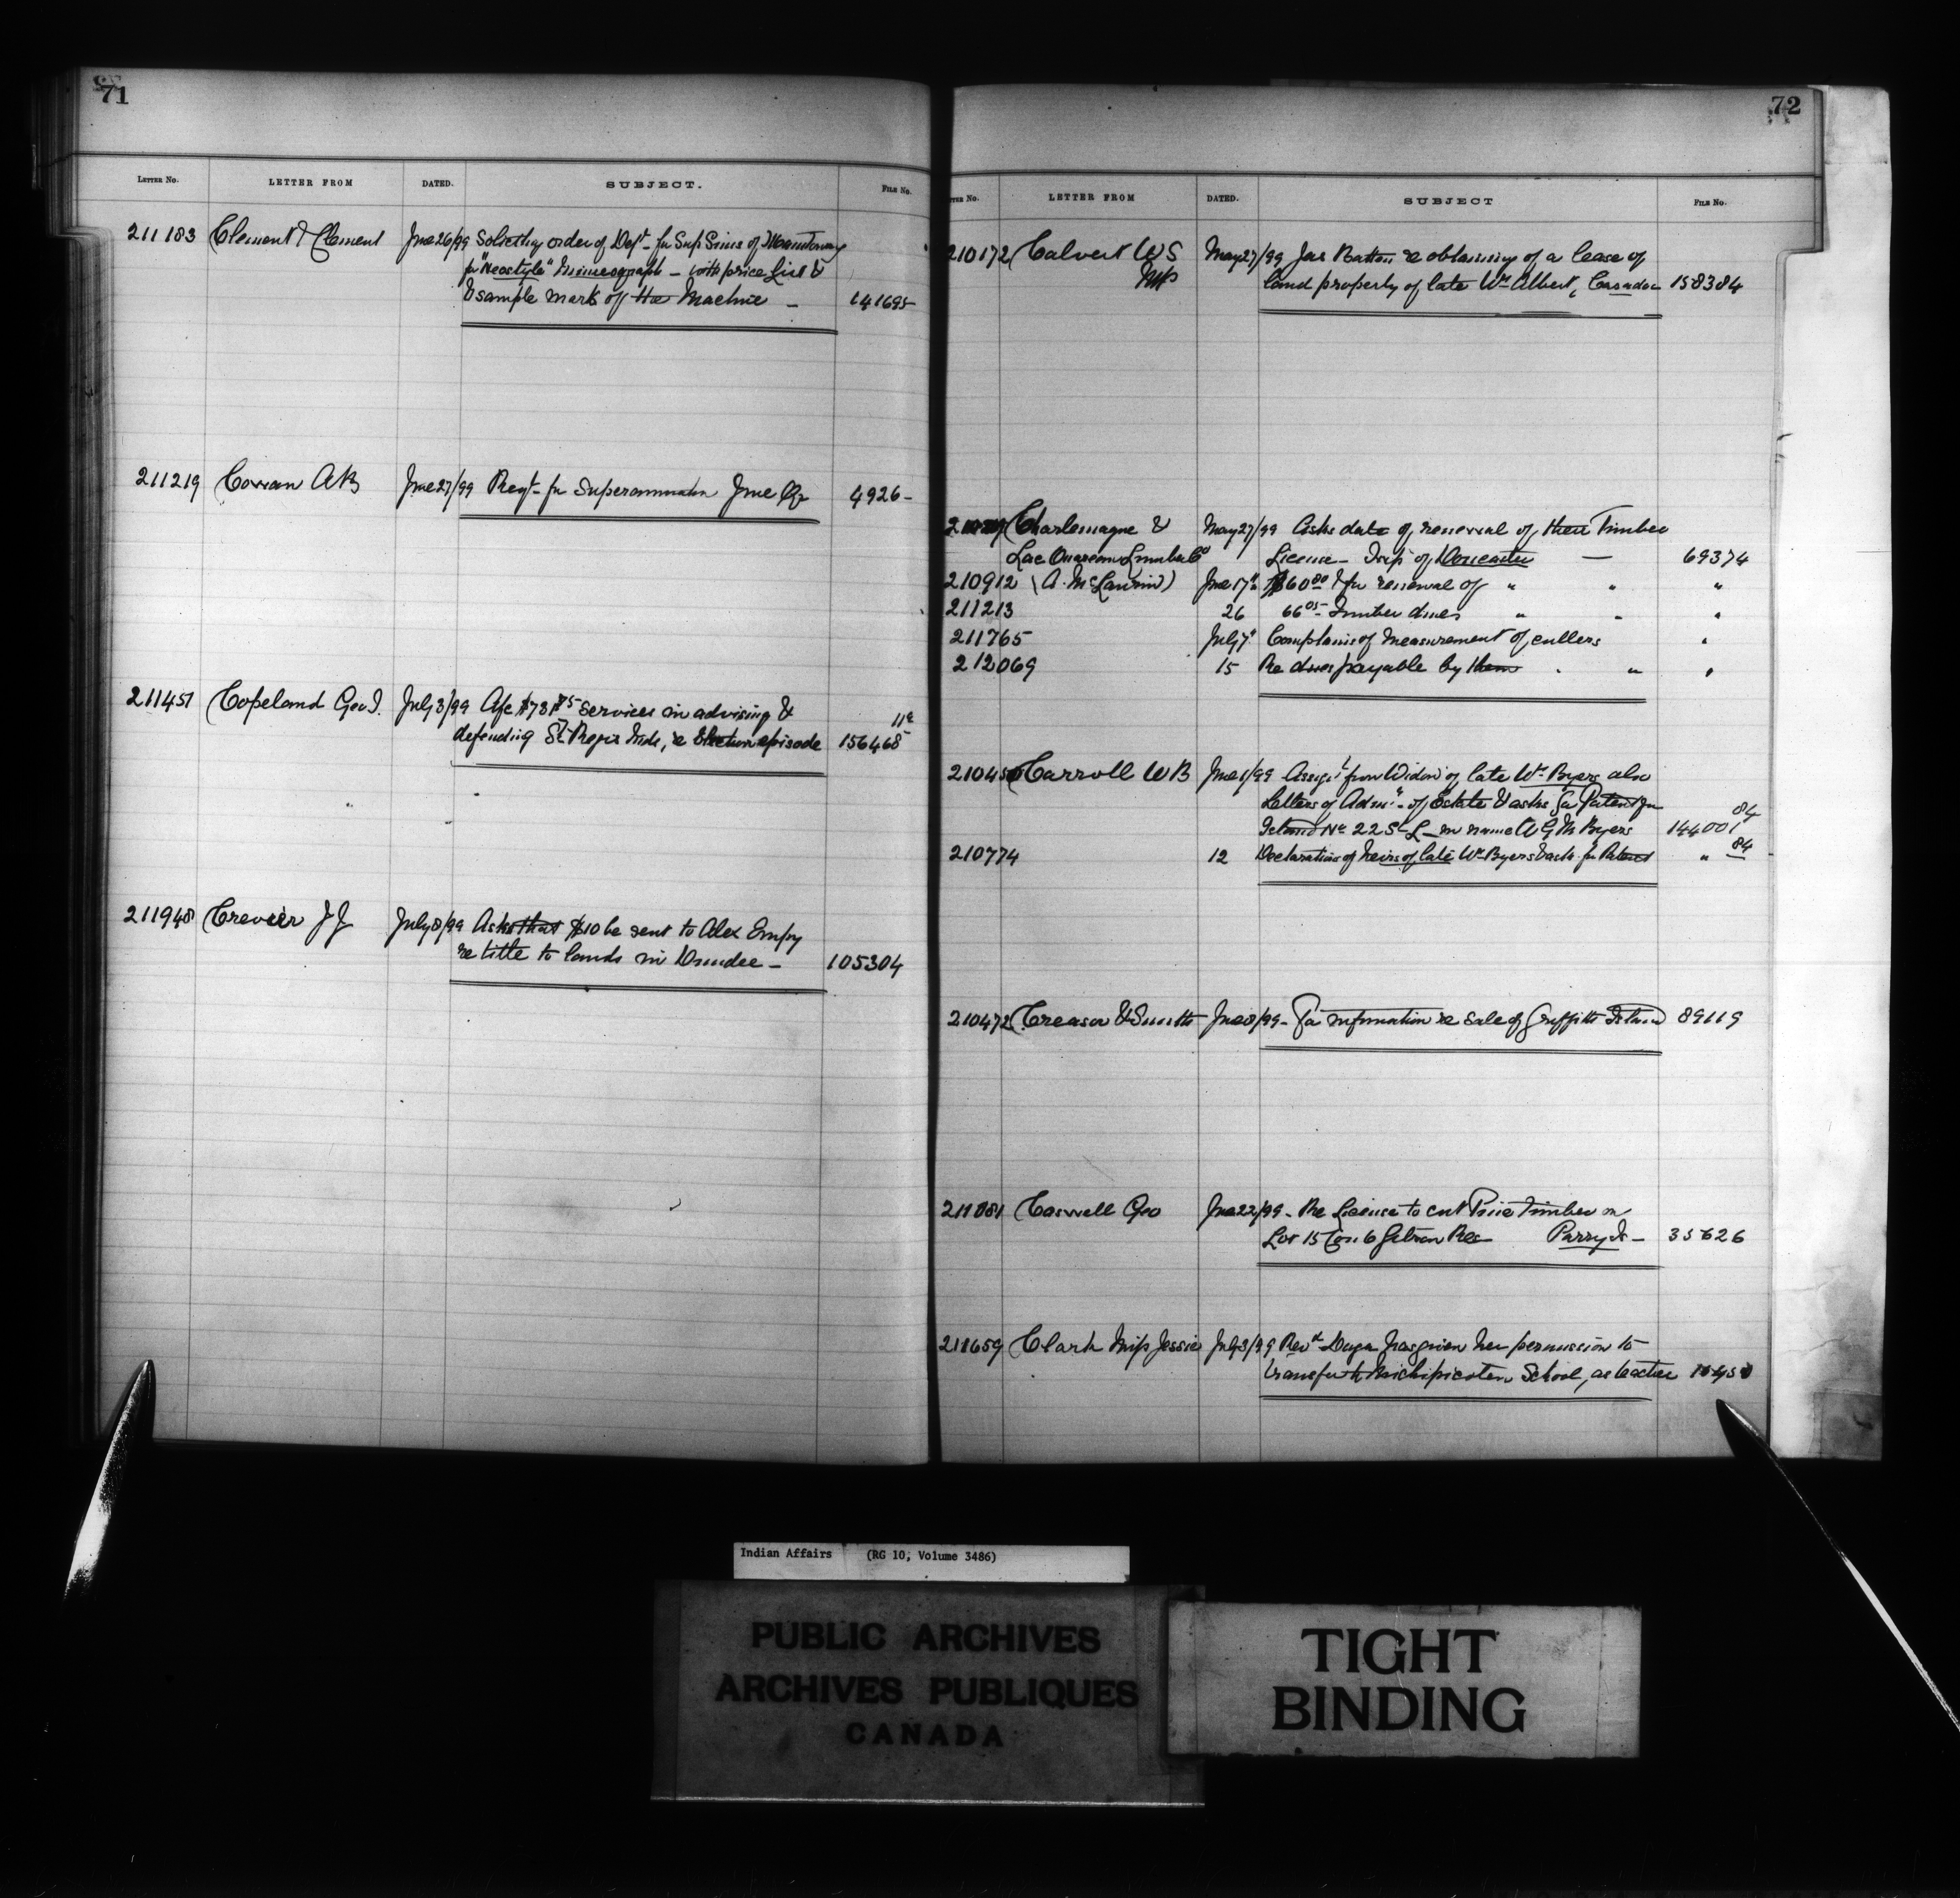 71
LETTER No. LETTER FROM DATED. SUBJECT. FILE No.
211183 Clement & Clement June 26/99 Soliciting order of Dept for Sup Sims of
for "Neostyle" Mimeograph – with price List &
& sample mark of the Machine – 141695
211219 Cowan AB June 27/99 Reqt for Superannuation June Qr 4926-
211451 Copeland Geo I. July 3/99 A/c $731 75 services in advising &
defending St Regis Inds, re Election episode 156468 11e
211948 Crevier JJ July 8/99 Asks that $10 be sent to Alex Empy
re title to lands in Dundee – 105304
72
LETTER No. LETTER FROM DATED. SUBJECT FILE No.
210172 Calvert WS May 27/99 Jas Batton re obtaining of a lease of
MP land property of late Wm Albert, Caradoc 158384
Charlemagne & May 27/99 Asks date of renewal of their Timber
Lac Ouareau Lumber Co License – Tsp of Doncaster — 69374
210912 (A. McLaurin) June 17" $60 00 for renewal of " " "
211213 26 66 05 Timber dues " " "
211765 July 7" Complains of measurement of cullers "
212069 15 Re dues payable by them . " "
210450 Carroll WB June 1/99 Assigt from Widow of late Wm Byers also
Letters of Admn – of Estate & asks for Patent for
Island No 22 St L – in name A G M Byers 144001 84
210774 12 Declaration of heirs of late Wm Byers & ask for Patent " 84
210472 Creasor & Smith June 8/99 – For information re sale of Griffith Island 89119
211081 Caswell Geo June 22/99 – Re License to cut Pine Timber on
Lot 15 Con 6 Gibson Res Parry Sd – 35626
211659 Clark Miss Jessie July 3/99 Revd Dugas has given her permission to
transfer to Michipicoten School, as teacher
Indian Affairs (RG 10, Volume 3486)
PUBLIC ARCHIVES
ARCHIVES PUBLIQUES
CANADA
TIGHT
BINDING